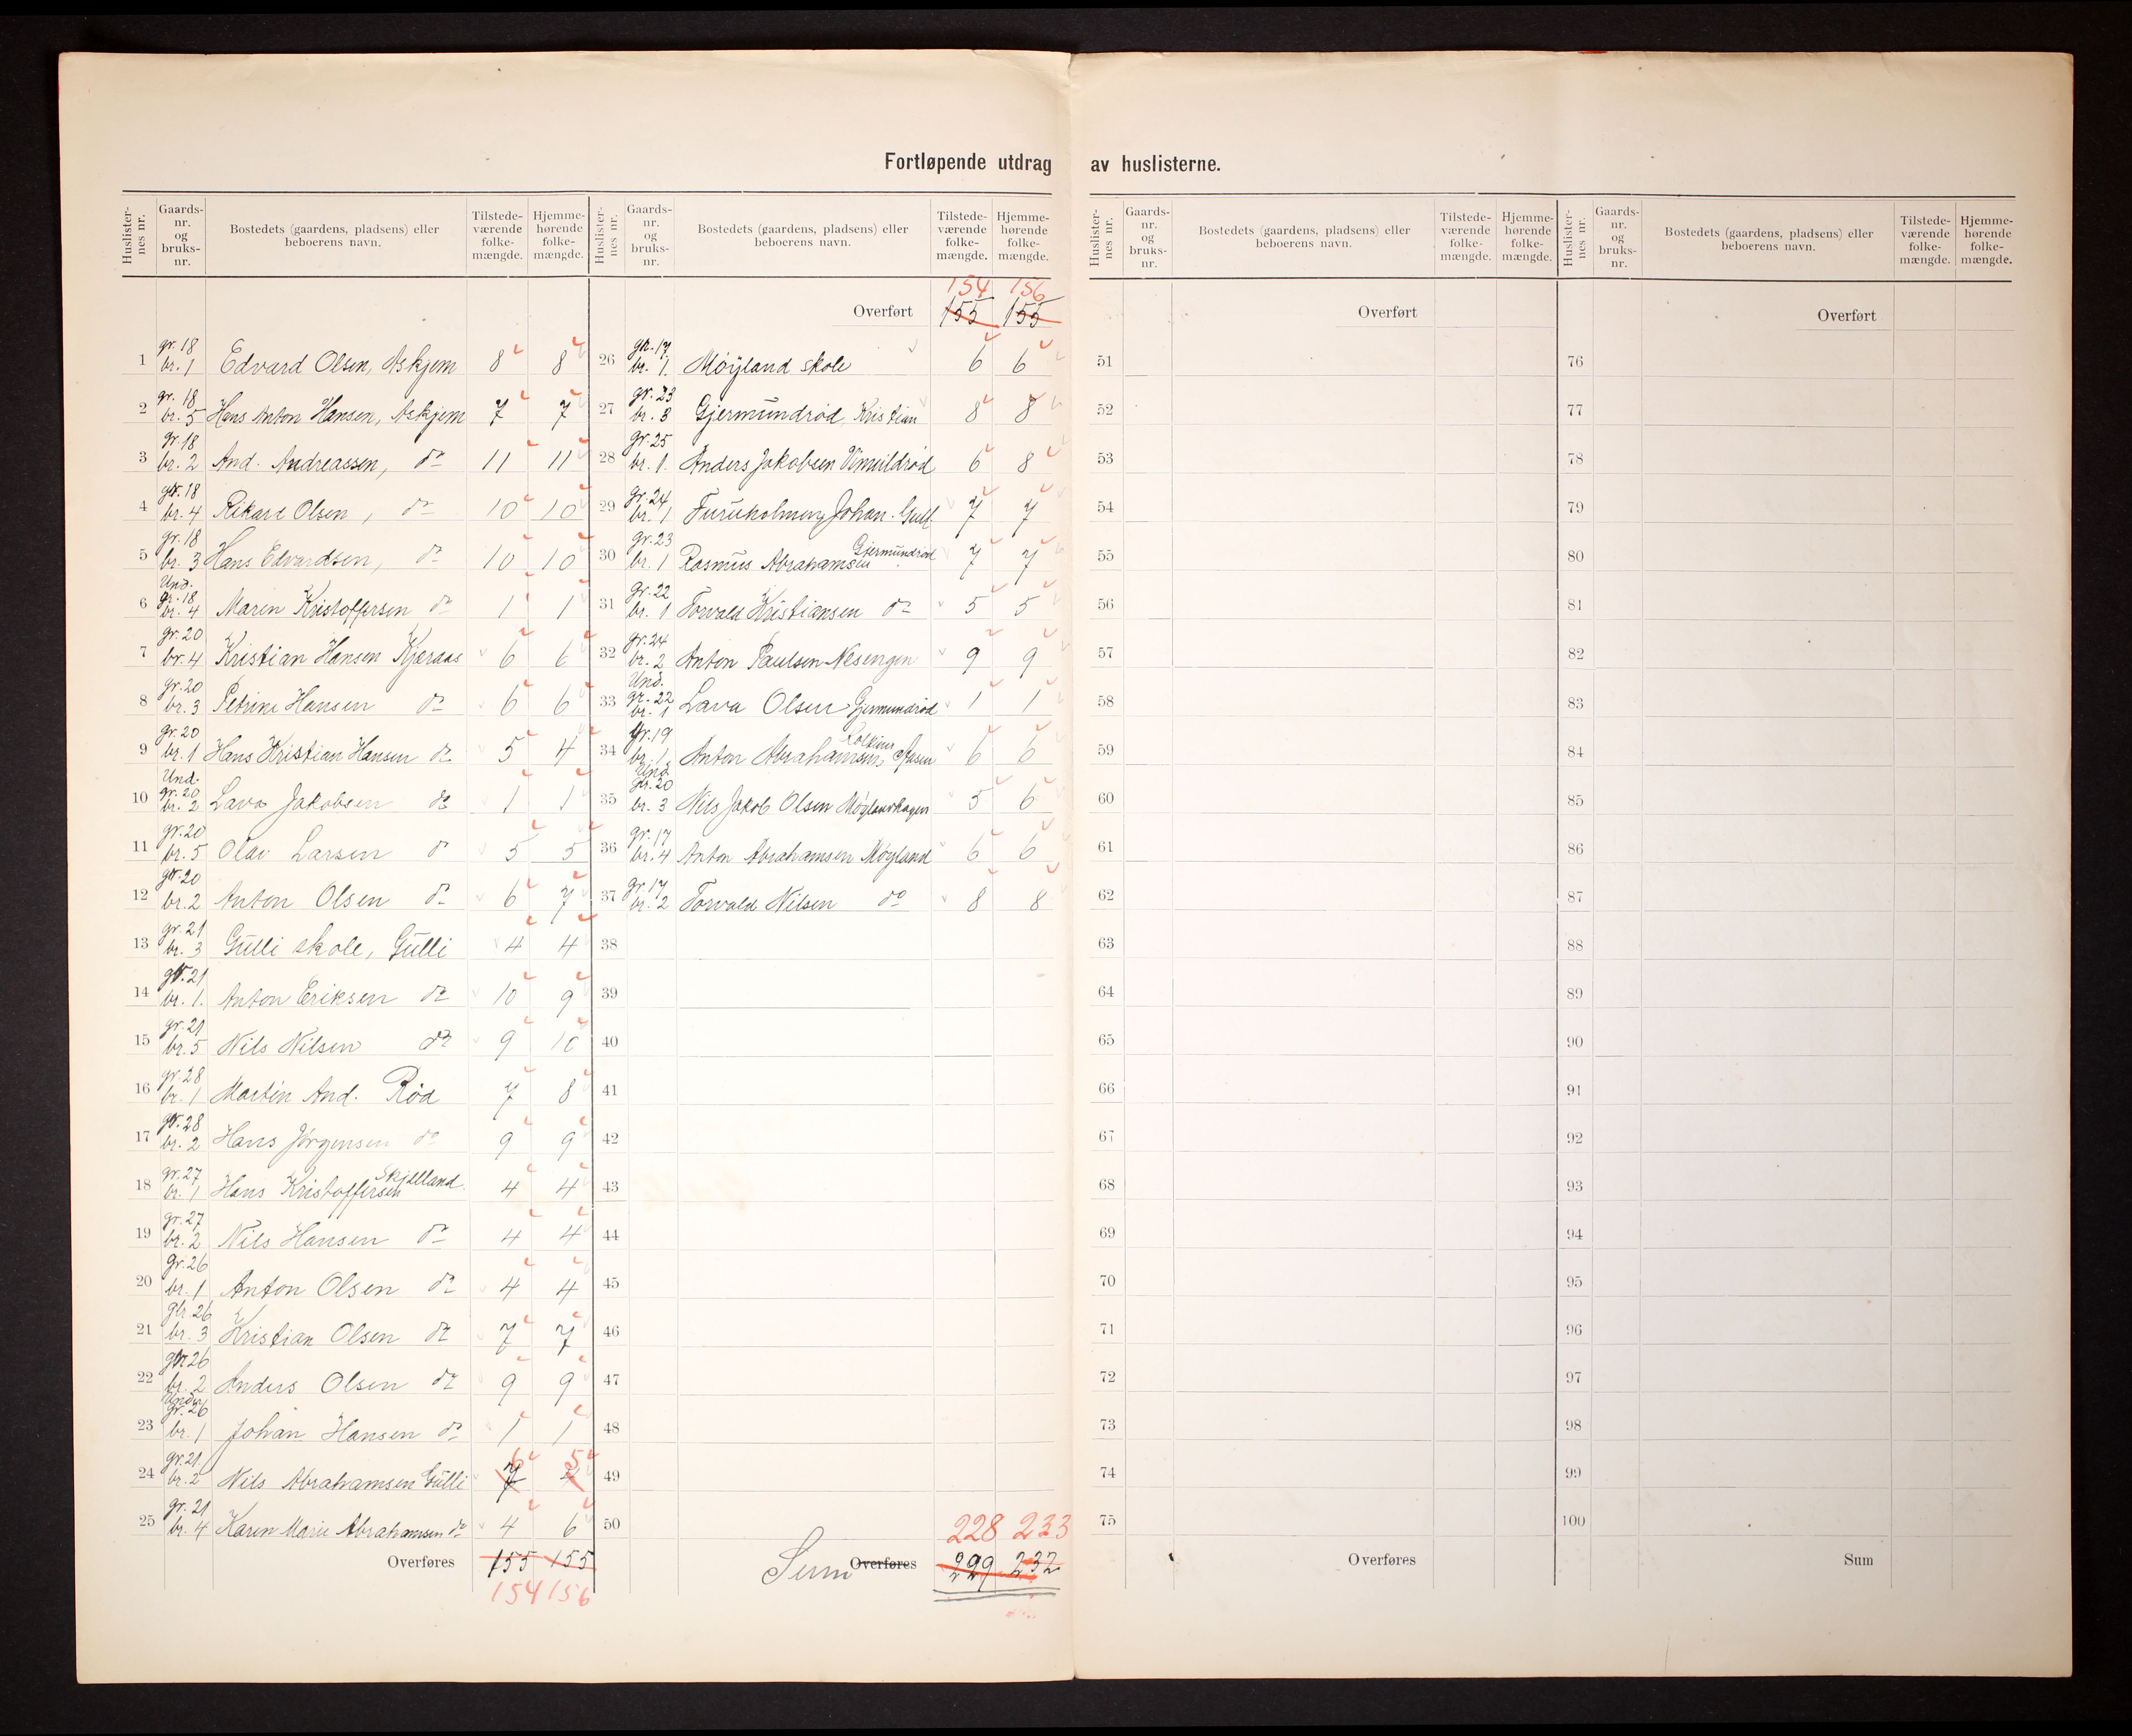 Fortløpende utdrag av huslisterne.
Huslisternes nr. Gaards-nr. og bruks-nr. Bostedets (gaardens, pladsens) eller beboerens navn. Tilstedeværende folkemængde. Hjemmehørende folkemængde.
1 gr. 18 br. 1 Edvard Olsen, Askjem 8 8
2 gr. 18 br. 5 Hans Anton Hansen, Askjem 7 7
3 gr. 18 br. 2 And. Andreassen, do 11 11
4 gr. 18 br. 4 Rikard Olsen, do 10 10
5 gr. 18 br. 3 Hans Edvardsen, do 10 10
6 Und. gr. 18 br. 4 Maren Kristoffersen do 1 1
7 gr. 20 br. 4 Kristian Hansen Kjæraas 6 6
8 gr. 20 br. 3 Petrine Hansen do 6 6
9 gr. 20 br. 1 Hans Kristian Hansen do 5 4
10 Und. gr. 20 br. 2 Lava Jakobsen do 1 1
11 gr. 20 br. 5 Olav Larsen do 5 5
12 gr. 20 br. 2 Anton Olsen do 6 7
13 gr. 21 br. 3 Gulli skole, Gulli 4 4
14 gr. 21 br. 1. Anton Eriksen do 10 9
15 gr. 21 br. 5 Nils Nilsen do 9 10
16 gr. 28 br. 1 Martin And. Rød 7 8
17 gr. 28 br. 2 Hans Jørgensen do 9 9
18 gr. 27 br. 1 Hans Kristoffersen Skjelland 4 4
19 gr. 27 br. 2 Nils Hansen do 4 4
20 gr. 26 br. 1 Anton Olsen do 4 4
21 gr. 26 br. 3 Kristian Olsen do 7 7
22 gr. 26 br. 2 Anders Olsen do 9 9
23 Under gr. 26 br. 1 Johan Hansen do 1 1
24 gr. 21. br. 2 Nils Abrahamsen Gulli 7 6 5
25 gr. 21 br. 4 Karen Marie Abrahamsen do 4 6
Overføres 155 155
154 156
Huslisternes nr. Gaards-nr. og bruks-nr. Bostedets (gaardens, pladsens) eller beboerens navn. Tilstedeværende folkemængde. Hjemmehørende folkemængde.
154 156
Overført 155 155
26 gr. 17 br. 1. Møyland skole 6 6
27 gr. 23 br. 8 Gjermundrød, Kristian 8 8
28 gr. 25 br. 1. Anders Jakobsen 6 8
29 gr. 24 br. 1 Furuholmen, Johan. Gull 7 7
30 gr. 23 br. 1 Rasmus Abrahamsen Gjermundrød 7 7
31 gr. 22 br. 1 Torvald Kristiansen do 5 5
32 gr. 24 br. 2 Anton Paulsen Nesengen 9 9
33 Und. gr. 22 br. 1 Lava Olsen Gjermundrød 1 1
34 gr. 19 br. 1. Anton Abrahamsen, Aasen 6 6
35 Und. gr. 20 br. 3 Nils Jakob Olsen Møylandhagen 5 6
36 gr. 17 br. 4 Anton Abrahamsen Møyland 6 6
37 gr. 17 br. 2 Torvald Nilsen do 8 8
38
39
40
41
42
43
44
45
46
47
48
49
50
228 233
Sum Overføres 229 232
Huslisternes nr. Gaards-nr. og bruks-nr. Bostedets (gaardens, pladsens) eller beboerens navn. Tilstedeværende folkemængde. Hjemmehørende folkemængde.
Overført
51
52
53
54
55
56
57
58
59
60
61
62
63
64
65
66
67
68
69
70
71
72
73
74
75
Overføres
Huslisternes nr. Gaards-nr. og bruks-nr. Bostedets (gaardens, pladsens) eller beboerens navn. Tilstedeværende folkemængde. Hjemmehørende folkemængde.
Overført
76
77
78
79
80
81
82
83
84
85
86
87
88
89
90
91
92
93
94
95
96
97
98
99
100
Sum